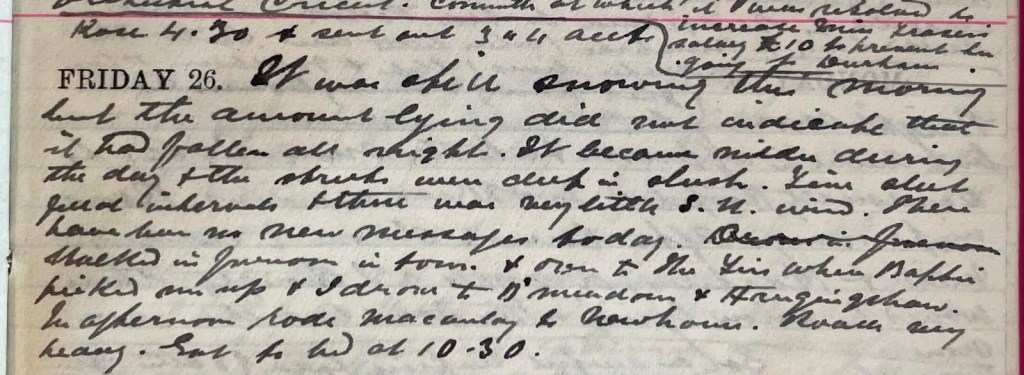 Committee at which it was resolved to
Rose 4.30 & sent out 3 & 4 accts increase Miss Frasers
salary £10 to prevent her
going to Durham.
FRIDAY 26. It was still snowing this morning
but the amount lying did not indicate that
it had fallen all night. It became milder during
the day & the streets were deep in slush. Fine sleet
fell at intervals & there was very little S. W. wind. There
have been no new messages today. forenoon
Walked in forenoon in town & over to the Firs where Baptie
picked me up & I drove to B'meadow & Hangingshaw.
In afternoon rode Macaulay to Newhouse. Roads very
heavy. Got to bed at 10-30.